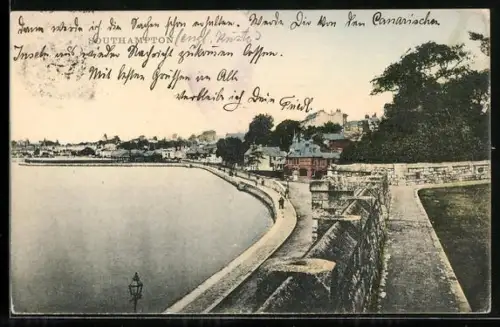 dann werde ich die Sachen schon erhalten. Werde Dir von den Canarischen
SOUTHAMPTON
Inseln aus wieder Nachricht zukommen lassen.
Mit besten Grüssen an Alle
verbleibe ich Dein Friedl.